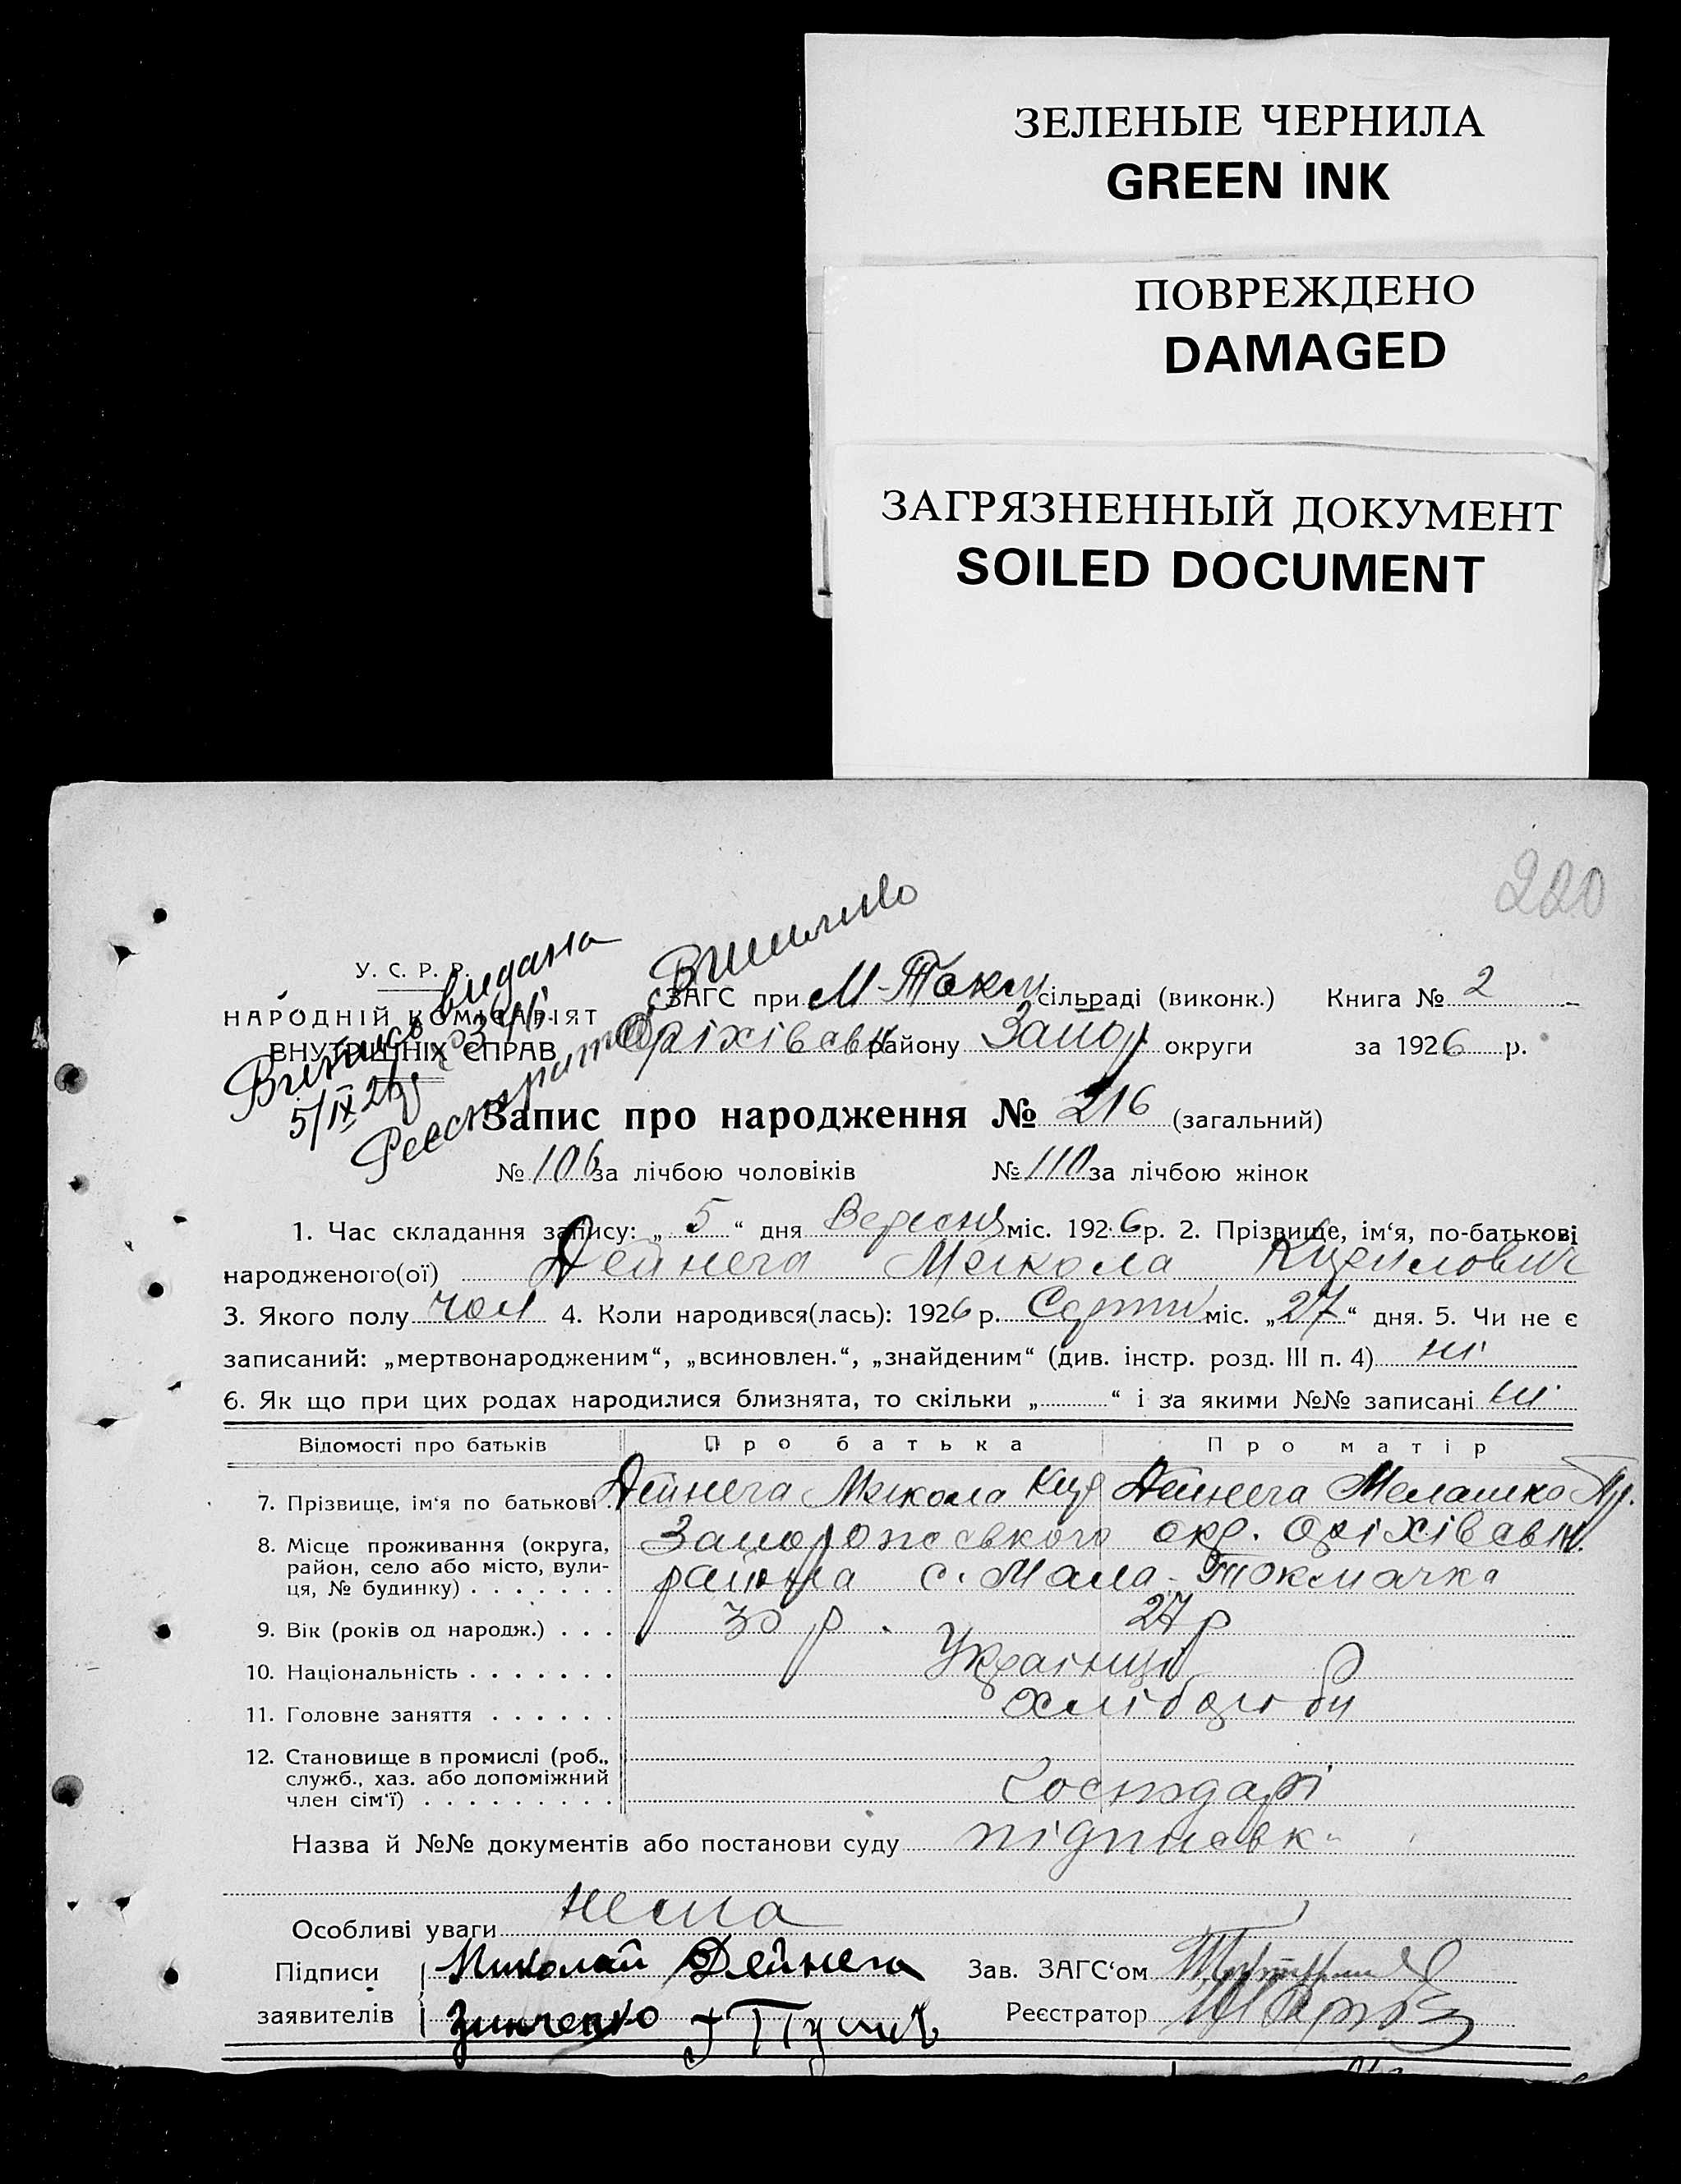 ЗЕЛЕНЫЕ ЧЕРНИЛА
GREEN INK
ПОВРЕЖДЕНО
DAMAGED
ЗАГРЯЗНЕННЫЙ ДОКУМЕНТ
SOILED DOCUMENT
220
У. С. Р. Р.
НАРОДНІЙ КОМІСАРІЯТ
ВНУТРІШНІХ СПРАВ
видана
5/IX 26
ЗАГС при М-Токм сільраді (виконк.) Книга № 2
Оріхівськ району Запор округи за 1926 р.
Запис про народження № 216 (загальний)
№ 106 за лічбою чоловіків № 110 за лічбою жінок
1. Час складання запису: „ 5 “ дня Вересня міс. 1926 р. 2. Прізвище, ім‘я, по-батькові
народженого(ої) Дейнега Микола
3. Якого полу чол 4. Коли народився(лась): 1926 р. Серпня міс. „ 27 “ дня. 5. Чи не є
записаний: „мертвонародженим“, „всиновлен.“, „знайденим“ (див. інстр. розд. III п. 4) ні
6. Як що при цих родах народилися близнята, то скільки „ “ і за якими №№ записані ні
Відомості про батьків Про батька Про матір
7. Прізвище, ім‘я по батькові Дейнега Микола Кир Дейнега Мелашка
8. Місце проживання (округа,
район, село або місто, вули-
ця, № будинку)
Запорожського окр. Оріхівськ.
района с. Мала-Токмачка
9. Вік (років од народж.) 30 р. 27 р
10. Національність Українці
11. Головне заняття хлібороби
12. Становище в промислі (роб.,
служб., хаз. або допоміжний
член сім‘ї)
Господарі
Назва й №№ документів або постанови суду
Особливі уваги нема
Підписи Миколай Дейнега Зав. ЗАГС‘ом
заявителів Зинченко Реєстратор